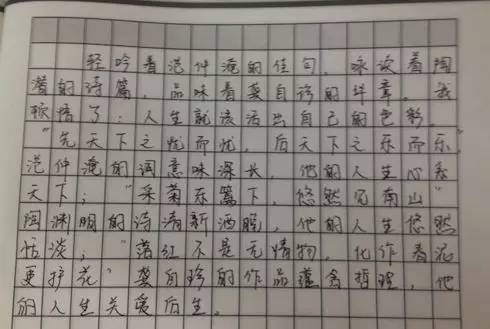 轻吟着范仲淹的佳句,咏读着陶
潜的诗篇,品味着龚自珍的华章。我
顿悟了:人生就该活出自己的色彩。
“先天下之忧而忧,后天下之乐而乐。”
范仲淹的词意味深长,他的人生心系
天下;“采菊东篱下,悠然见南山”
陶渊明的诗清新洒脱,他的人生悠然
恬淡;“落红不是无情物,化作春泥
更护花”龚自珍的作品蕴含哲理,他
的人生关爱后生。